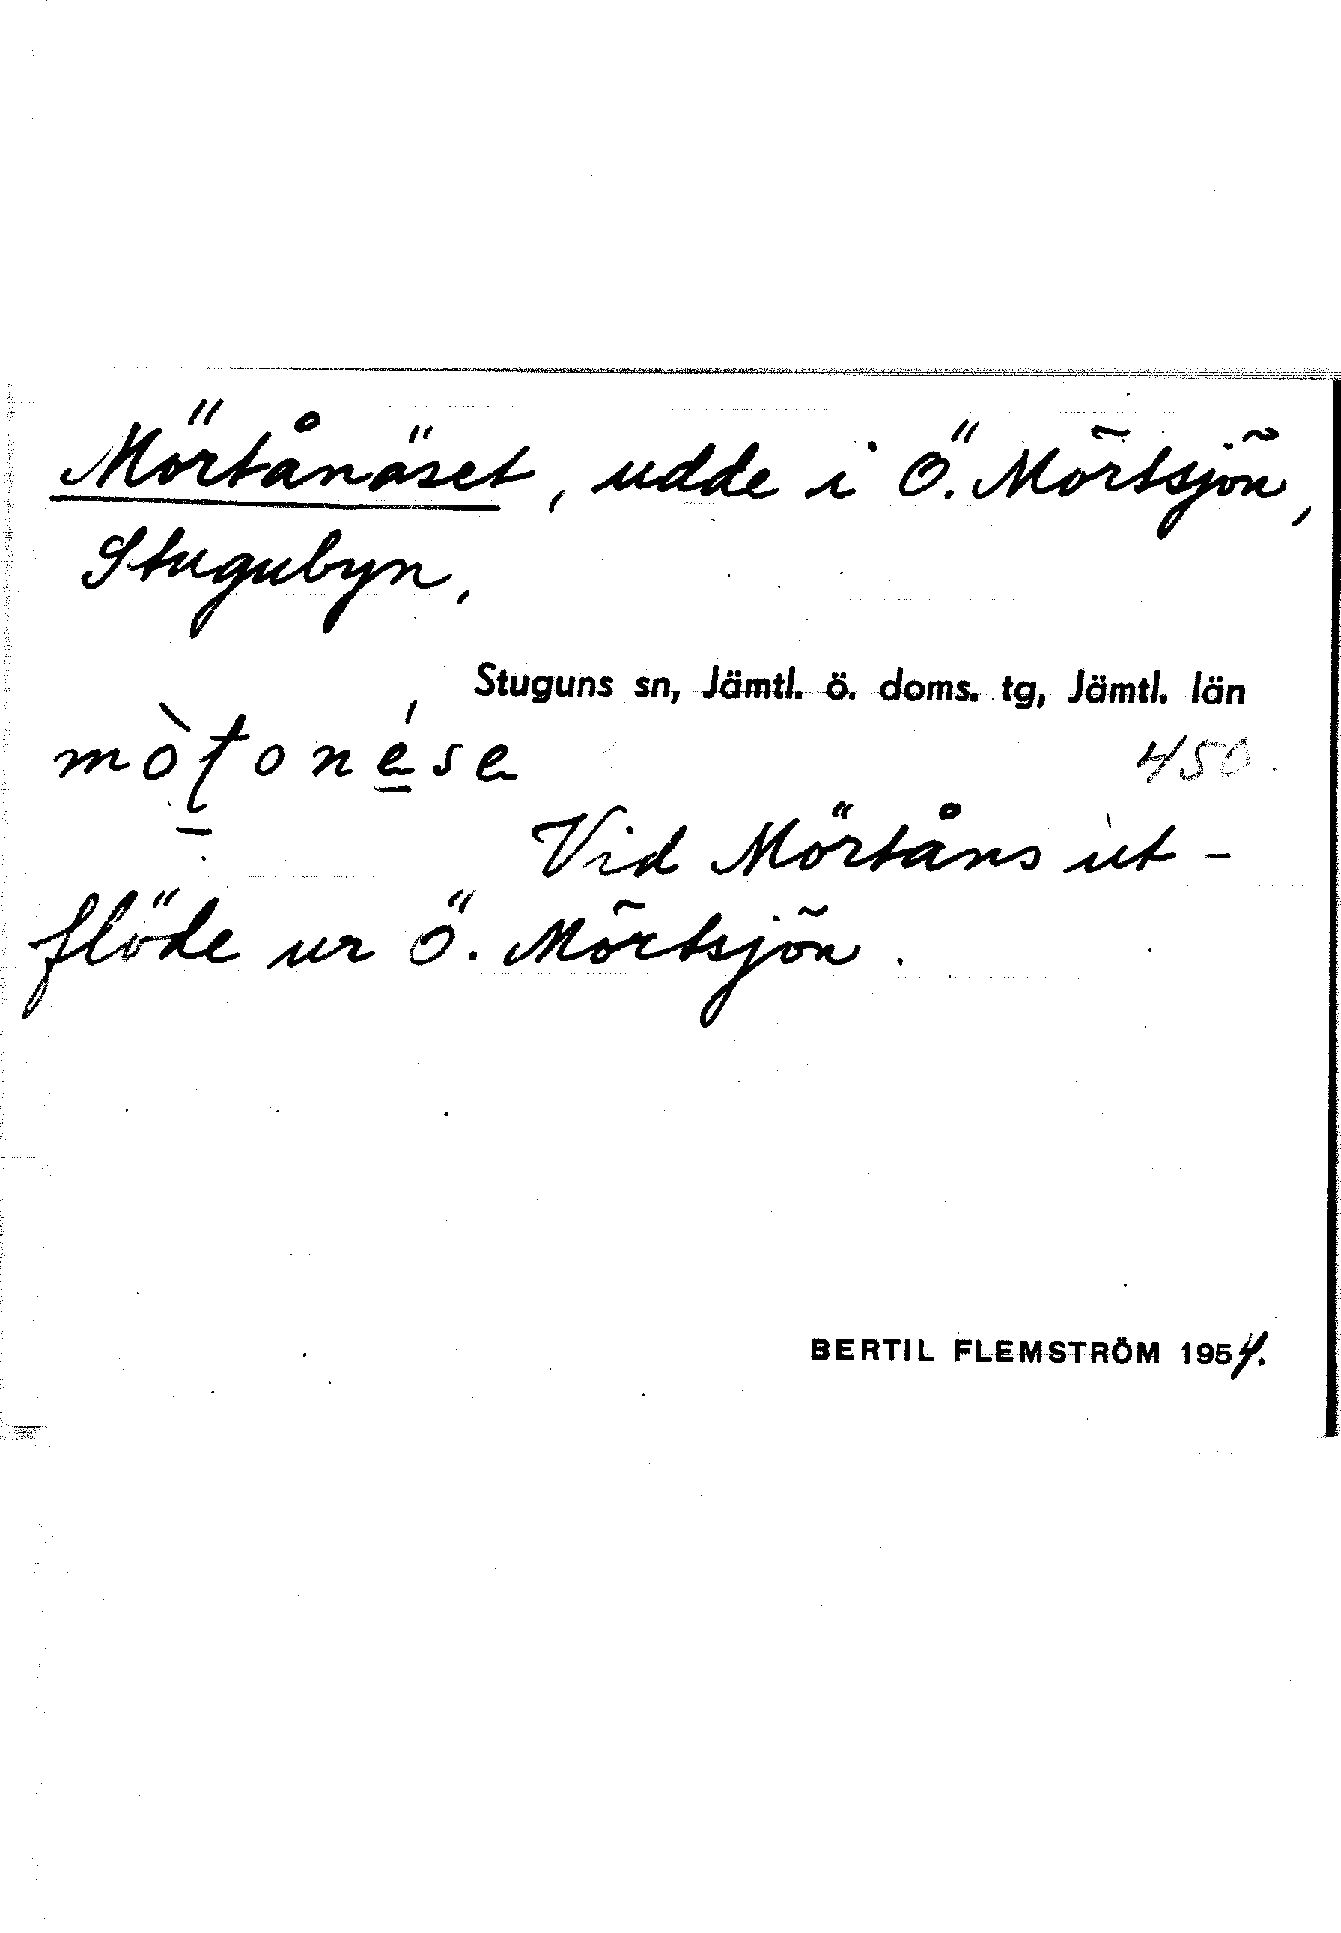 Mörtånäset, udde i Ö. Mörtsjön,
Stugubyn,
Stuguns sn, Jämtl. ö. doms. tg, Jämtl. län
450.
Vid Mörtåns ut-
flöde ur Ö. Mörtsjön.
BERTIL FLEMSTRÖM 1954.